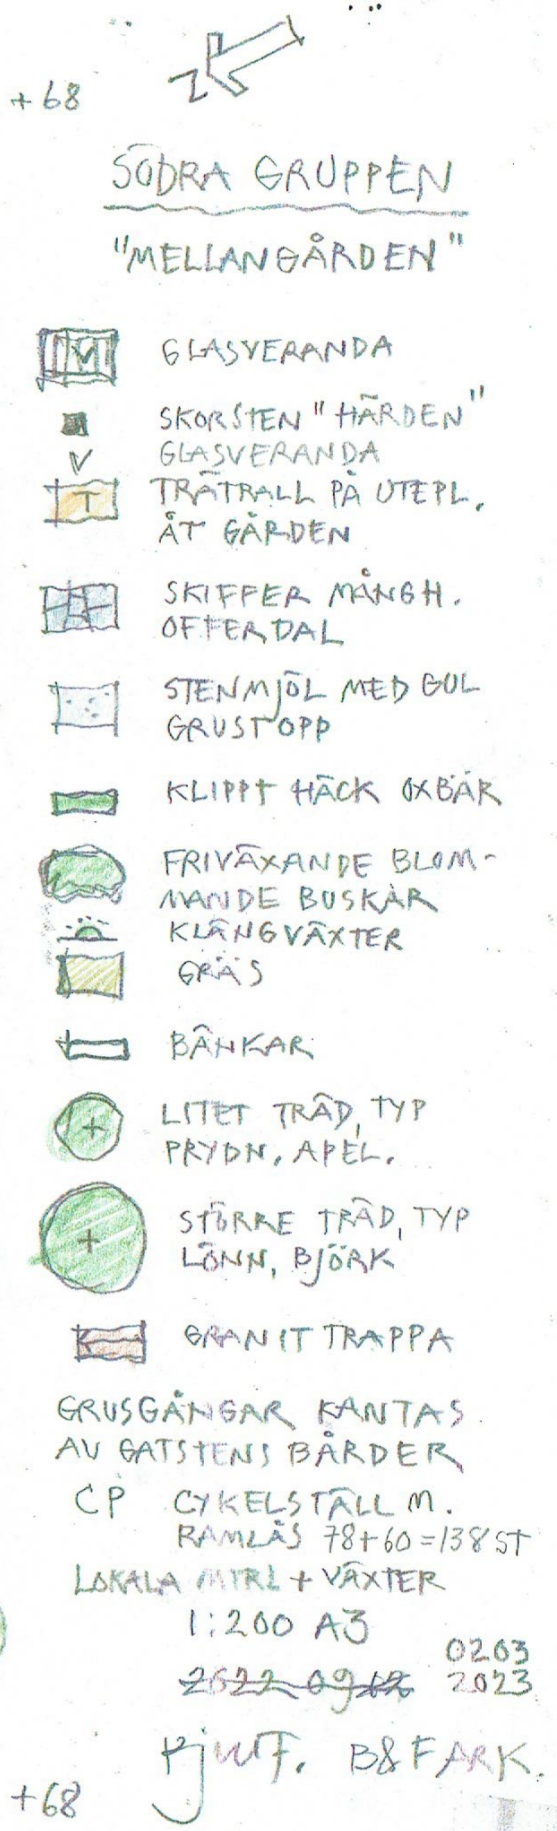 +68
SÖDRA GRUPPEN
"MELLANGÅRDEN"
V GLASVERANDA
SKORSTEN "HÄRDEN"
V GLASVERANDA
T TRÄTRALL PÅ UTEPL.
ÅT GÅRDEN
SKIFFER MÅNGH.
OFFERDAL
STENMJÖL MED GUL
GRUSTOPP
KLIPPT HÄCK OXBÄR
FRIVÄXANDE BLOM-
MANDE BUSKAR
KLÄNGVÄXTER
GRÄS
BÄNKAR
LITET TRÄD, TYP
PRYDN. APEL.
STÖRRE TRÄD, TYP
LÖNN, BJÖRK
GRANITTRAPPA
GRUSGÅNGAR KANTAS
AV GATSTENSBÅRDER
CP CYKELSTÄLL M.
RAMLÅS 78+60=138 ST
LOKALA MTRL + VÄXTER
1:200 A3
0203
2023
B&F ARK.
+68